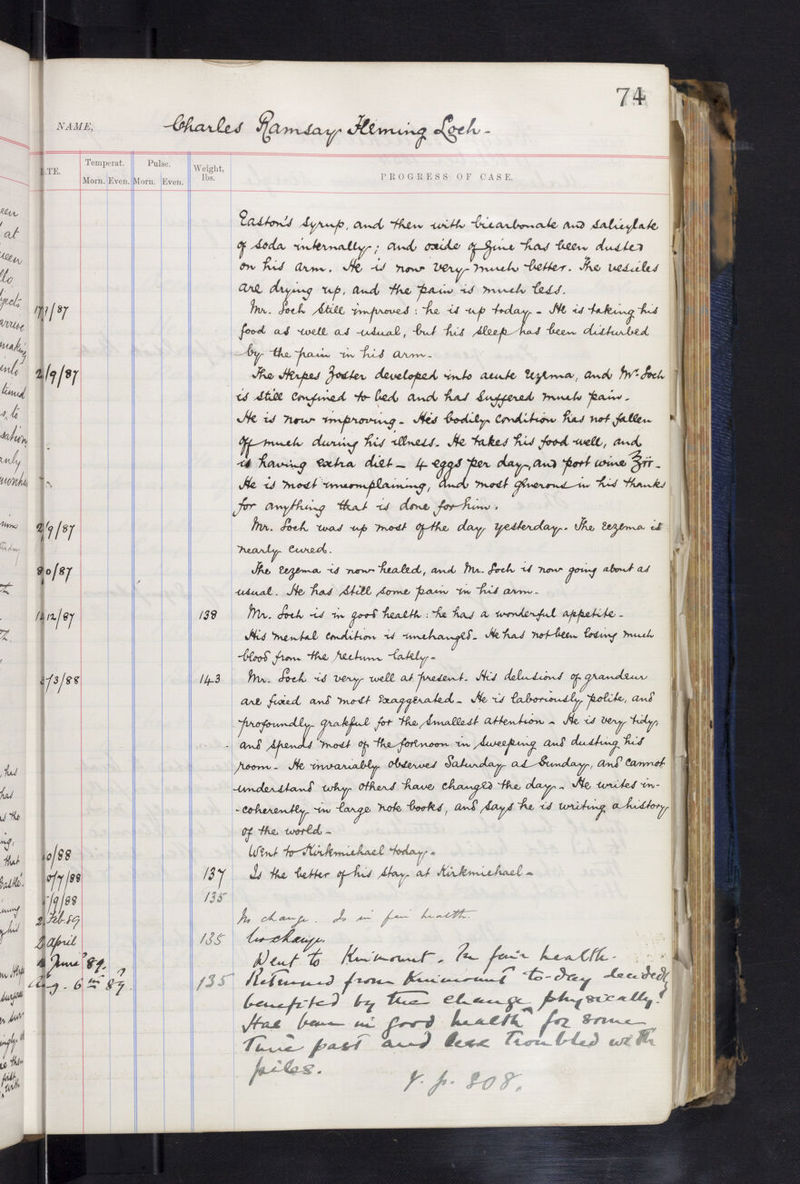 74
NAME, Charles Ramsay Fleming Loch -
Temperat. Pulse. Weight, lbs.
Morn. Even. Morn. Even.
PROGRESS OF CASE.
Easton's Syrup, and then with bicarbonate and salicylate
of soda internally; and oxide of zinc has been dusted
on his arm. He is now very much better. The vesicles
are drying up, and the pain is much less.
/87 Mr. Loch still improves: he is up today - He is taking his
food as well as usual, but his sleep has been disturbed
by the pain in his arm -
/9/87 The Herpes Zoster developed into acute Eczema, and Mr. Loch
is still confined to bed and has suffered much pain -
He is now improving - His bodily condition has not fallen
off much during his illness. He takes his food well, and
is having extra diet - 4 eggs per day, and port wine ℥iv -
He is most uncomplaining, and most generous in his thanks
for anything that is done for him.
/9/87 Mr. Loch was up most of the day yesterday. The Eczema is
nearly cured.
/87 The Eczema is now healed, and Mr. Loch is now going about as
usual. He has still some pain in his arm -
/12/87 138 Mr. Loch is in good health: he has a wonderful appetite -
His mental condition is unchanged - He has not been losing much
blood from the rectum lately -
/3/88 143 Mr. Loch is very well at present. His delusions of grandeur
are fixed and most exaggerated - He is laboriously polite, and
profoundly grateful for the smallest attention - He is very tidy,
and spends most of the forenoon in sweeping and dusting his
room - He invariably observes Saturday as Sunday, and cannot
understand why others have changed the day - He writes in-
-coherently in large note books, and says he is writing a history
of the world -
/88 Went to Kirkmichael today -
/7/88 137 Is the better of his stay at Kirkmichael -
/9/88 135
Feb 89 No change. Is in fair health.
April 135 No change.
June 89. Went to Knimount. In fair health.
Aug. 6th 89. 135 Returned from Knimount to-day decidedly
benefited by the change physically.
Has been in good health for some
time past and less troubled with
piles.
V. p. 808.